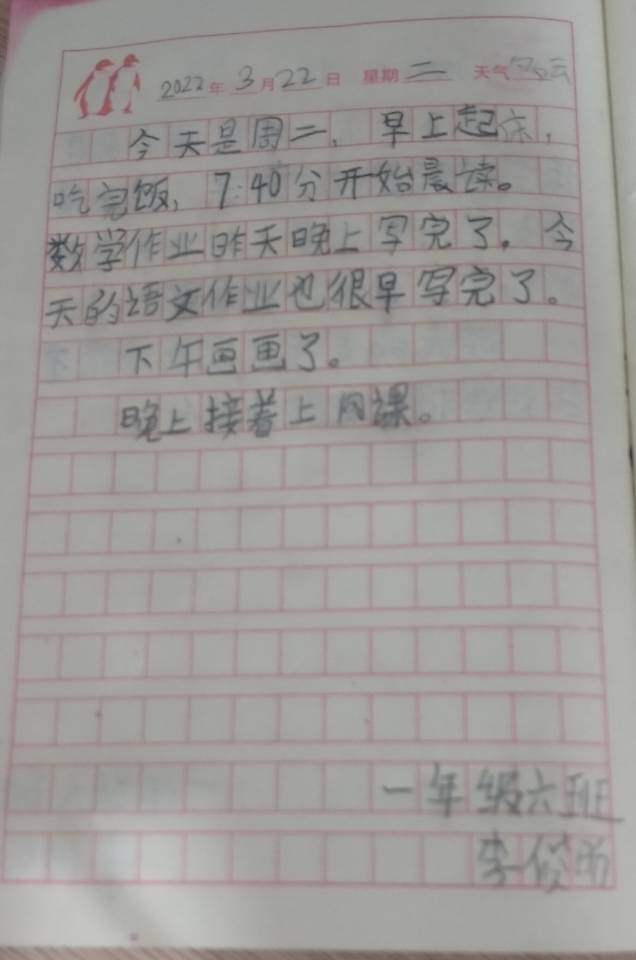 2022年3月22日 星期二 天气多云
今天是周二，早上起床，
吃完饭，7:40分开始晨读。
数学作业昨天晚上写完了。今
天的语文作业也很早写完了。
下午画画了。
晚上接着上网课。
一年级六班
李俊